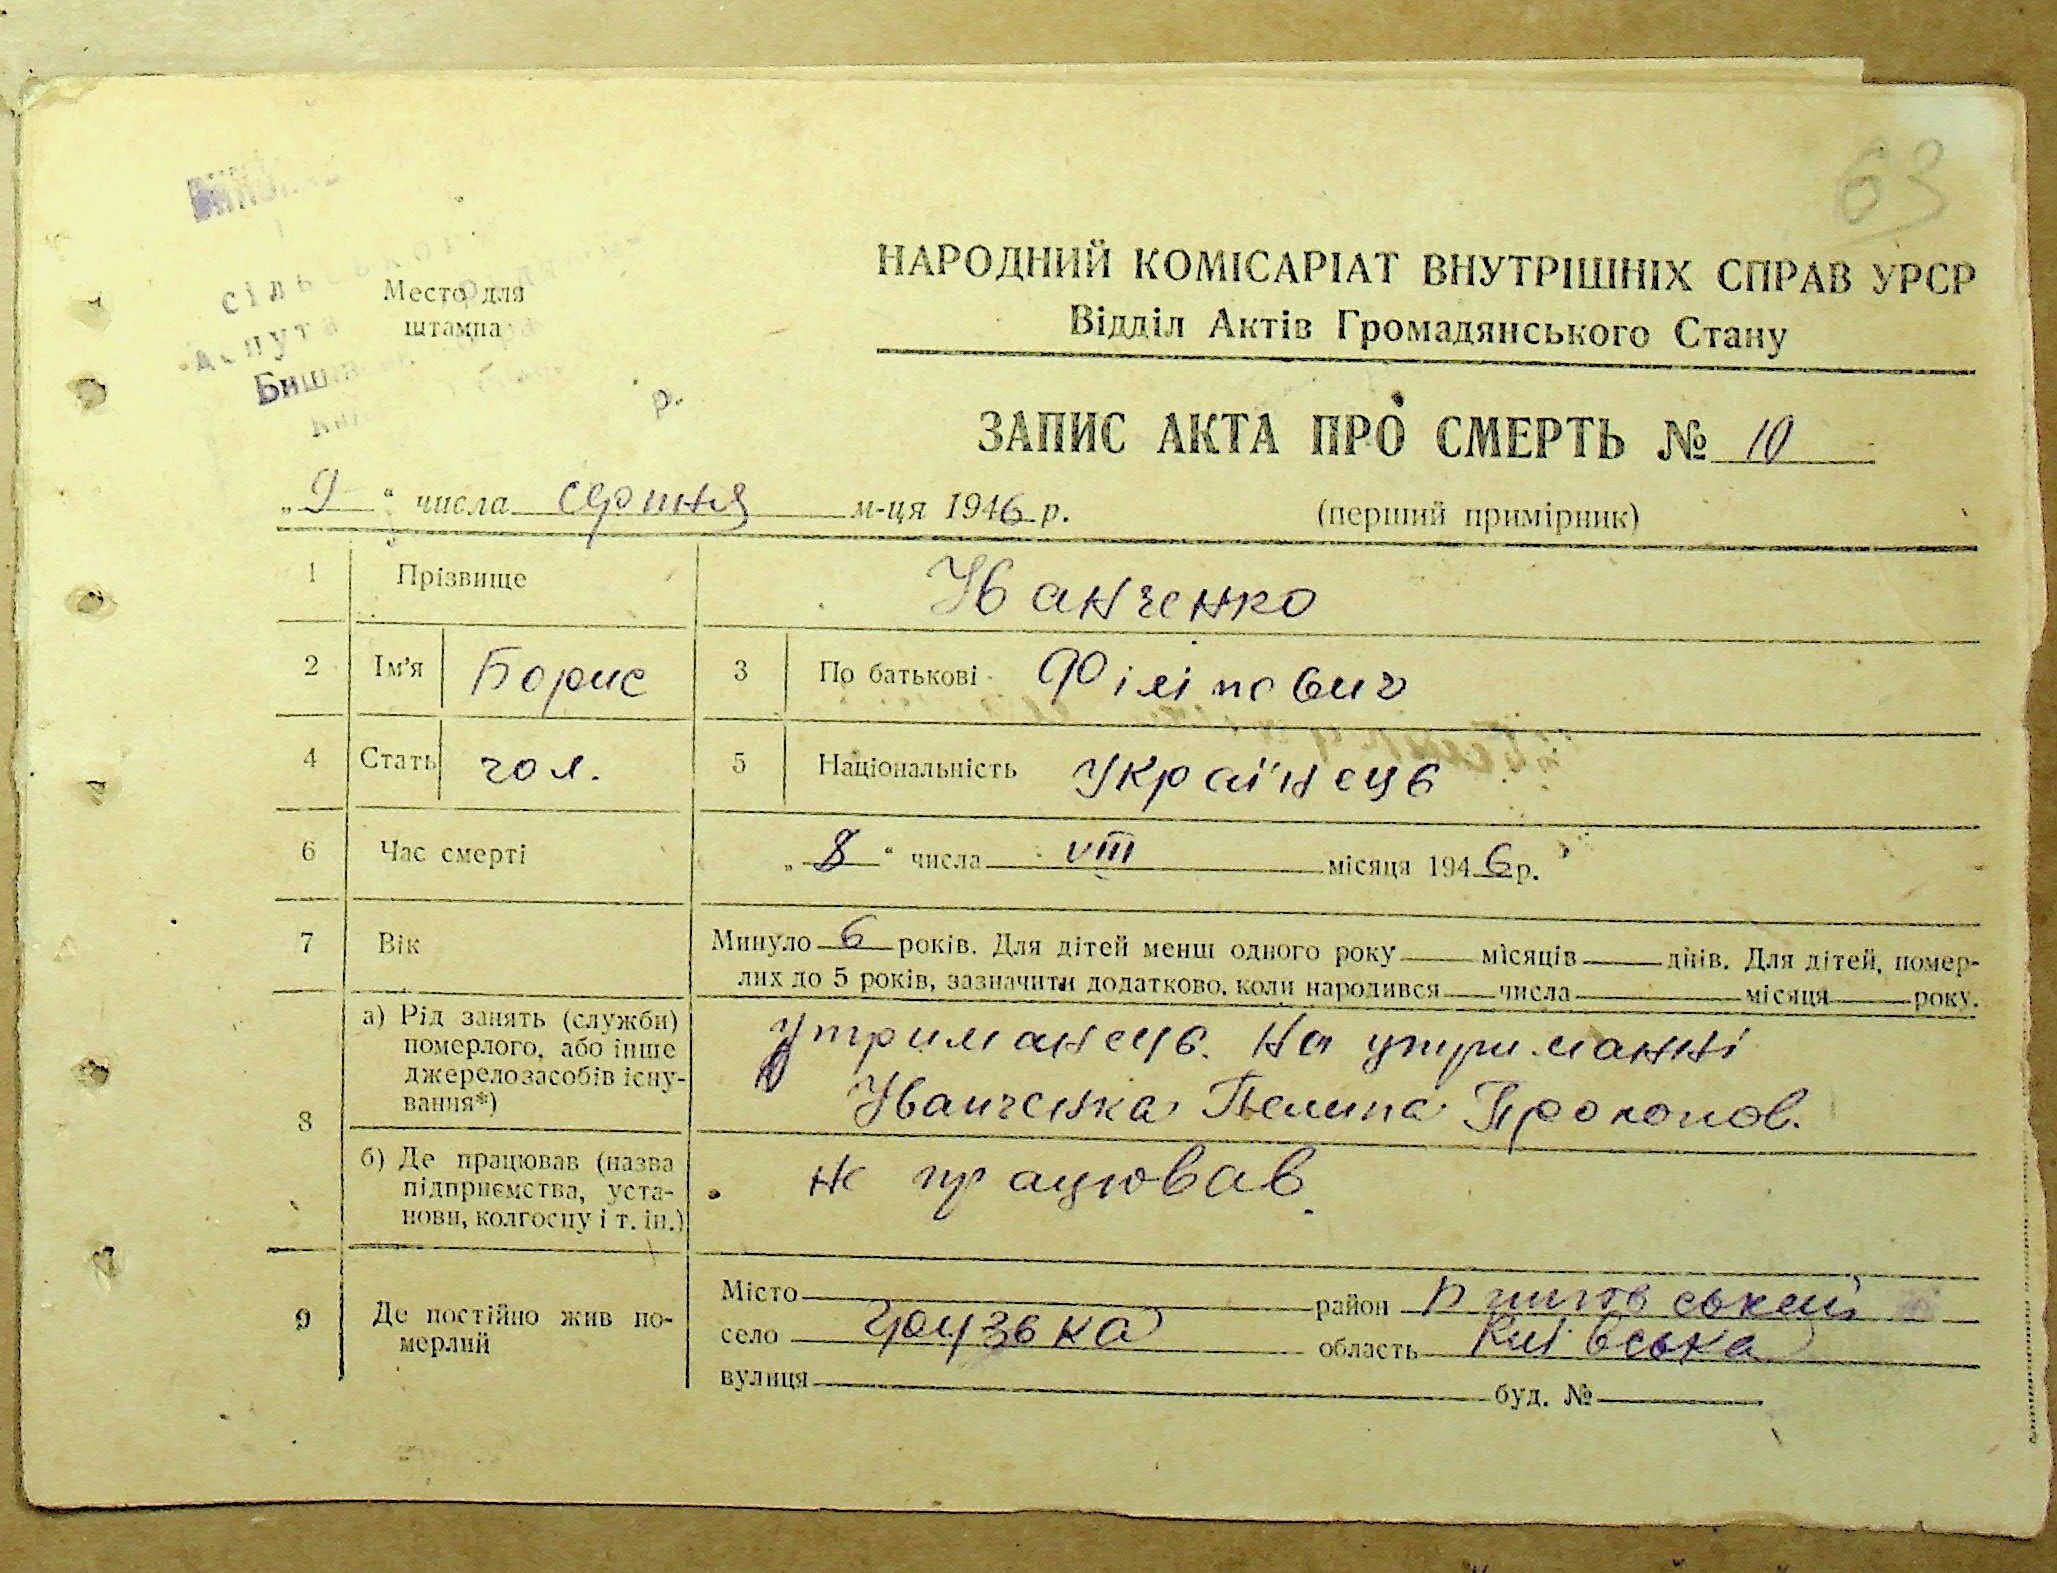 63
Место для
штампа
НАРОДНИЙ КОМІСАРІАТ ВНУТРІШНІХ СПРАВ УРСР
Відділ Актів Громадянського Стану
ЗАПИС АКТА ПРО СМЕРТЬ № 10
„9“ числа серпня м-ця 1946 р. (перший примірник)
1 Прізвище Іванченко
2 Ім'я Борис 3 По батькові Філіпович
4 Стать чол. 5 Національність Українець
6 Час смерті „8“ числа VIII місяця 1946 р.
7 Вік Минуло 6 років. Для дітей менш одного року місяців днів. Для дітей, помер-
лих до 5 років, зазначити додатково, коли народився числа місяця року.
8 а) Рід занять (служби)
померлого, або інше
джерело засобів існу-
вання*)
Утриманець. На утриманні
Іванченка Прокопов.
б) Де працював (назва
підприємства, уста-
нови, колгоспу і т. ін.)
не працював.
9 Де постійно жив по-
мерлий
Місто район
село Грузька область Київська
вулиця буд. №